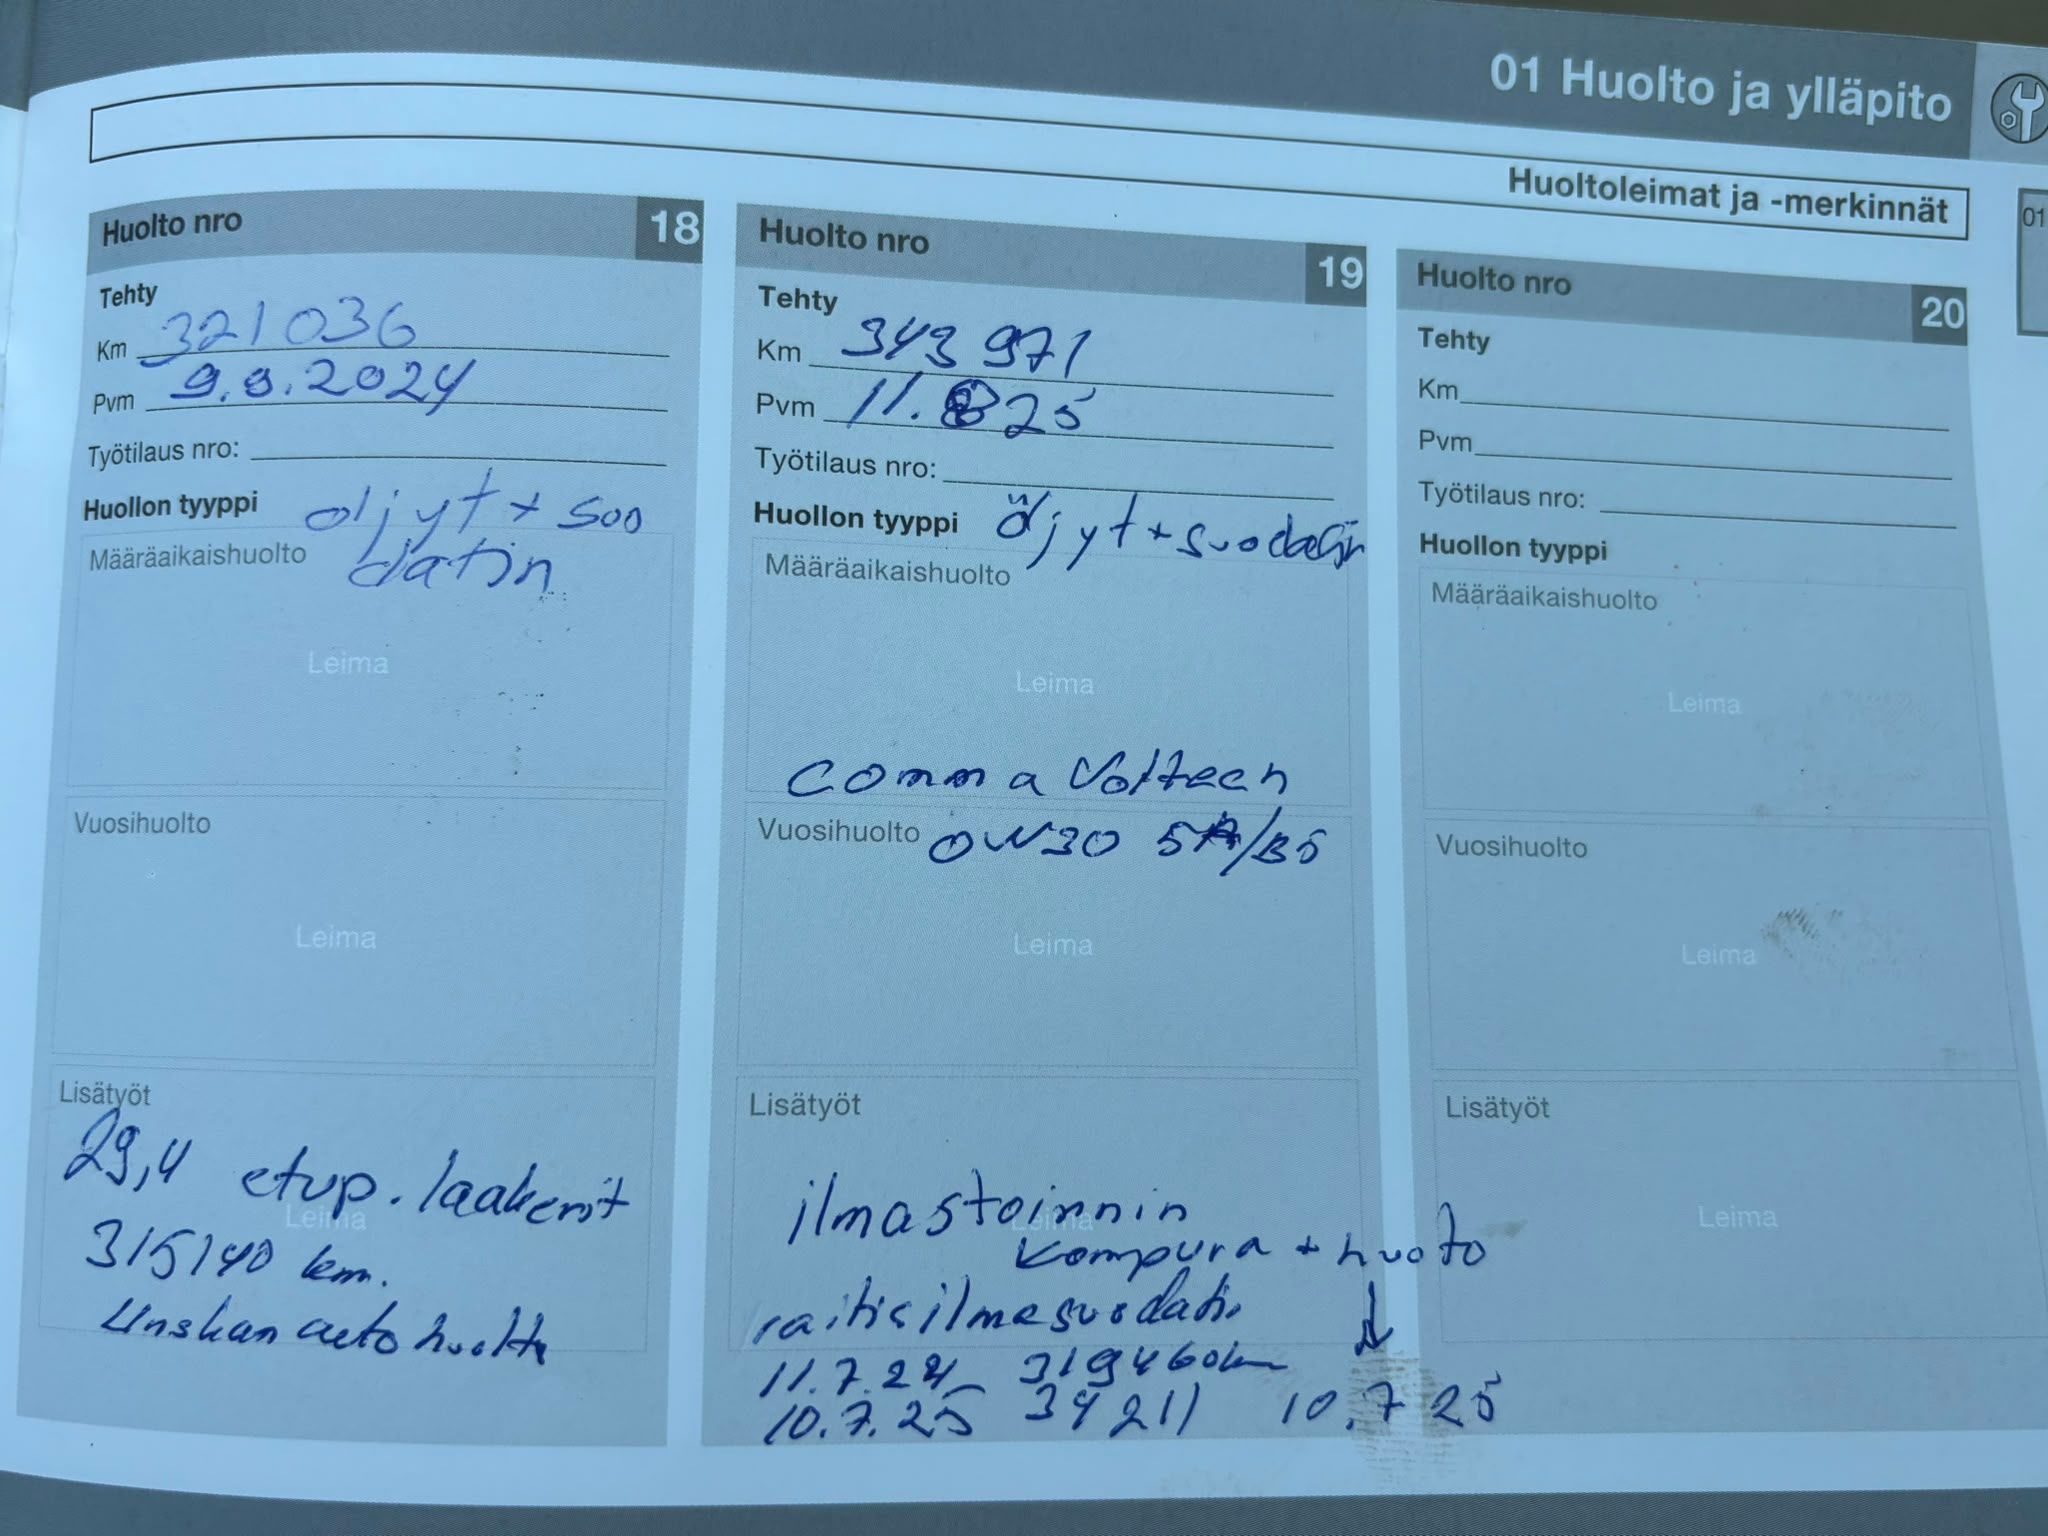 01 Huolto ja ylläpito
Huoltoleimat ja -merkinnät
01
Huolto nro 18
Tehty
Km 321036
Pvm 9.8.2024
Työtilaus nro:
Huollon tyyppi öljyt + suo
Määräaikaishuolto datin
Leima
Vuosihuolto
Leima
Lisätyöt
29,4 etup. laakerit
Leima
315140 km.
autohuolto
Huolto nro 19
Tehty
Km 343 971
Pvm 11.8 25
Työtilaus nro:
Huollon tyyppi öljyt + suodatin
Määräaikaishuolto
Leima
comma Voltech
Vuosihuolto 0W30 5A/B5
Leima
Lisätyöt
ilmastoinnin
Leima
kompura + huoto
raitisilmasuodatin
11.7.24 319460km
10.7.25 34211 10.7 25
Huolto nro 20
Tehty
Km
Pvm
Työtilaus nro:
Huollon tyyppi
Määräaikaishuolto
Leima
Vuosihuolto
Leima
Lisätyöt
Leima